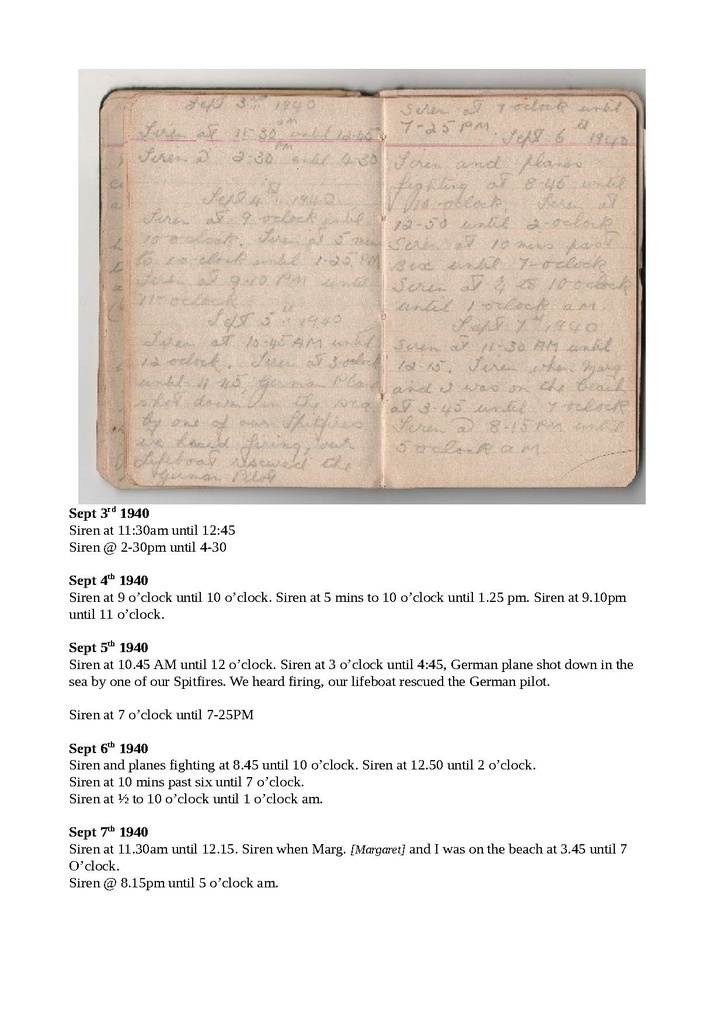 Sept 3rd 1940
Siren at 11-30 am until 12-45
Siren @ 2-30 PM until 4-30
Sept 4th 1940
Siren at 9 oclock until
10 oclock. Siren at 5 mins
to 10-oclock until 1-25 PM
Siren at 9-10 PM until
11-oclock
Sept 5th 1940
Siren at 10-45 AM until
12 oclock. Siren at 3 oclock
until 4-45 German Plane
shot down in the sea
by one of our Spitfires
we heard firing, our
Lifeboat rescued the
German Pilot
Siren at 7 oclock until
7-25 PM
Sept 6th 1940
Siren and planes
fighting at 8-45 until
10-oclock. Siren at
12-50 until 2-oclock
Siren at 10 mins past
six until 7-oclock
Siren at ¼ to 10 oclock
until 1 oclock am.
Sept 7th 1940
Siren at 11-30 AM until
12-15. Siren when Marg
and I was on the beach
at 3-45 until 7 oclock
Siren @ 8-15 PM until
5 oclock am.
Sept 3rd 1940
Siren at 11:30am until 12:45
Siren @ 2-30pm until 4-30
Sept 4th 1940
Siren at 9 o’clock until 10 o’clock. Siren at 5 mins to 10 o’clock until 1.25 pm. Siren at 9.10pm
until 11 o’clock.
Sept 5th 1940
Siren at 10.45 AM until 12 o’clock. Siren at 3 o’clock until 4:45, German plane shot down in the
sea by one of our Spitfires. We heard firing, our lifeboat rescued the German pilot.
Siren at 7 o’clock until 7-25PM
Sept 6th 1940
Siren and planes fighting at 8.45 until 10 o’clock. Siren at 12.50 until 2 o’clock.
Siren at 10 mins past six until 7 o’clock.
Siren at ½ to 10 o’clock until 1 o’clock am.
Sept 7th 1940
Siren at 11.30am until 12.15. Siren when Marg. [Margaret] and I was on the beach at 3.45 until 7
O’clock.
Siren @ 8.15pm until 5 o’clock am.